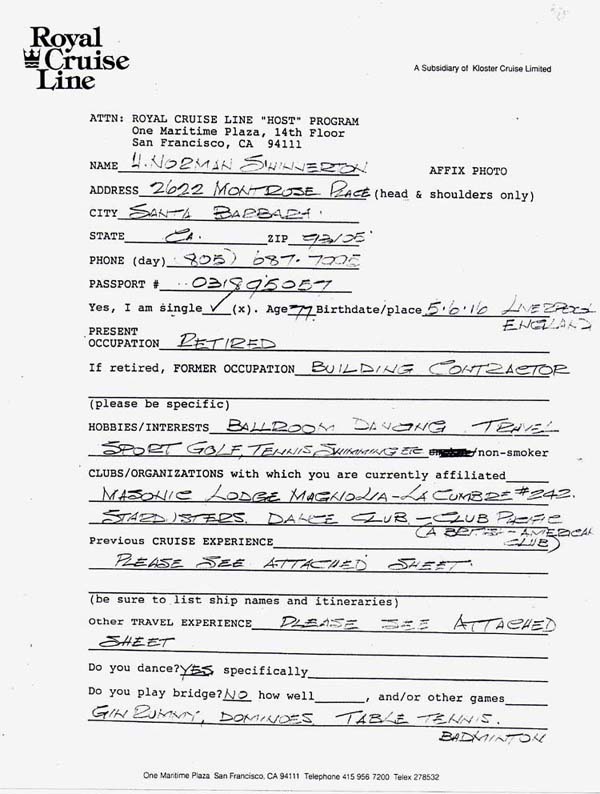 Royal
Cruise
Line
A Subsidiary of Kloster Cruise Limited
ATTN: ROYAL CRUISE LINE "HOST" PROGRAM
One Maritime Plaza, 14th Floor
San Francisco, CA 94111
NAME H. NORMAN SWINNERTON AFFIX PHOTO
ADDRESS 2622 MONTROSE PLACE (head & shoulders only)
CITY SANTA BARBARA.
STATE CA. ZIP 93105
PHONE (day) 805) 687-
PASSPORT # 031895057
Yes, I am single ✓ (x). Age 77 Birthdate/place 5.6.16 LIVERPOOL
ENGLAND
PRESENT
OCCUPATION RETIRED
If retired, FORMER OCCUPATION BUILDING CONTRACTOR
(please be specific)
HOBBIES/INTERESTS BALLROOM DANCING TRAVEL
SPORT GOLF, TENNIS SWIMMING ETC /non-smoker
CLUBS/ORGANIZATIONS with which you are currently affiliated
MASONIC LODGE MAGNOLIA-LA CUMBRE #242.
STARDISTERS. DANCE CLUB - CLUB PACIFIC
(A BRITISH-AMERICAN
CLUB)
Previous CRUISE EXPERIENCE
PLEASE SEE ATTACHED SHEET.
(be sure to list ship names and itineraries)
Other TRAVEL EXPERIENCE PLEASE SEE ATTACHED
SHEET
Do you dance? YES specifically
Do you play bridge? NO how well , and/or other games
GIN RUMMY, DOMINOES TABLE TENNIS.
BADMINTON
One Maritime Plaza San Francisco, CA 94111 Telephone 415 956 7200 Telex 278532